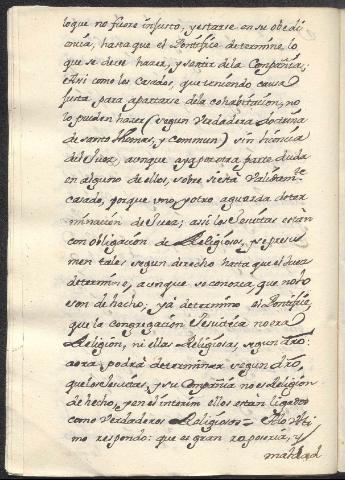 loque no fuere injusto, y estarse en su obedi
encia, hasta que el Pontifice determine, lo
que se deve hacer, y sentir de la Compañia;
Asi como los Casados, que teniendo causa
justa para apartarse de la cohabitacion, no
lo pueden hacer (segun verdadera doctrina
de santo Thomas, y commun) sin licencia
del Juez, aunque aya por otra parte duda
en alguno de ellos, sobre si està Validamte
casado, porque uno, y otro aguarda deter
minacion de Juez; asi los Jesuitas estàn
con obligacion de Religiosos, y se presu
men tales segun derecho hasta que el Juez
determine, aunque se conozca, que no lo
son de hecho; yà determino el Pontifice,
que la congregacion Jesuitica no era
Religion, ni ellas Religiosas segun dro.
aora podrà determinar segun dro,
que los Jesuitas, y su Compañia no es Religion
de hecho, y en el interim ellos estàn ligados
como verdaderos Religiosos = A lo Ulti
mo respondo: que es gran raposeria, y
maldad